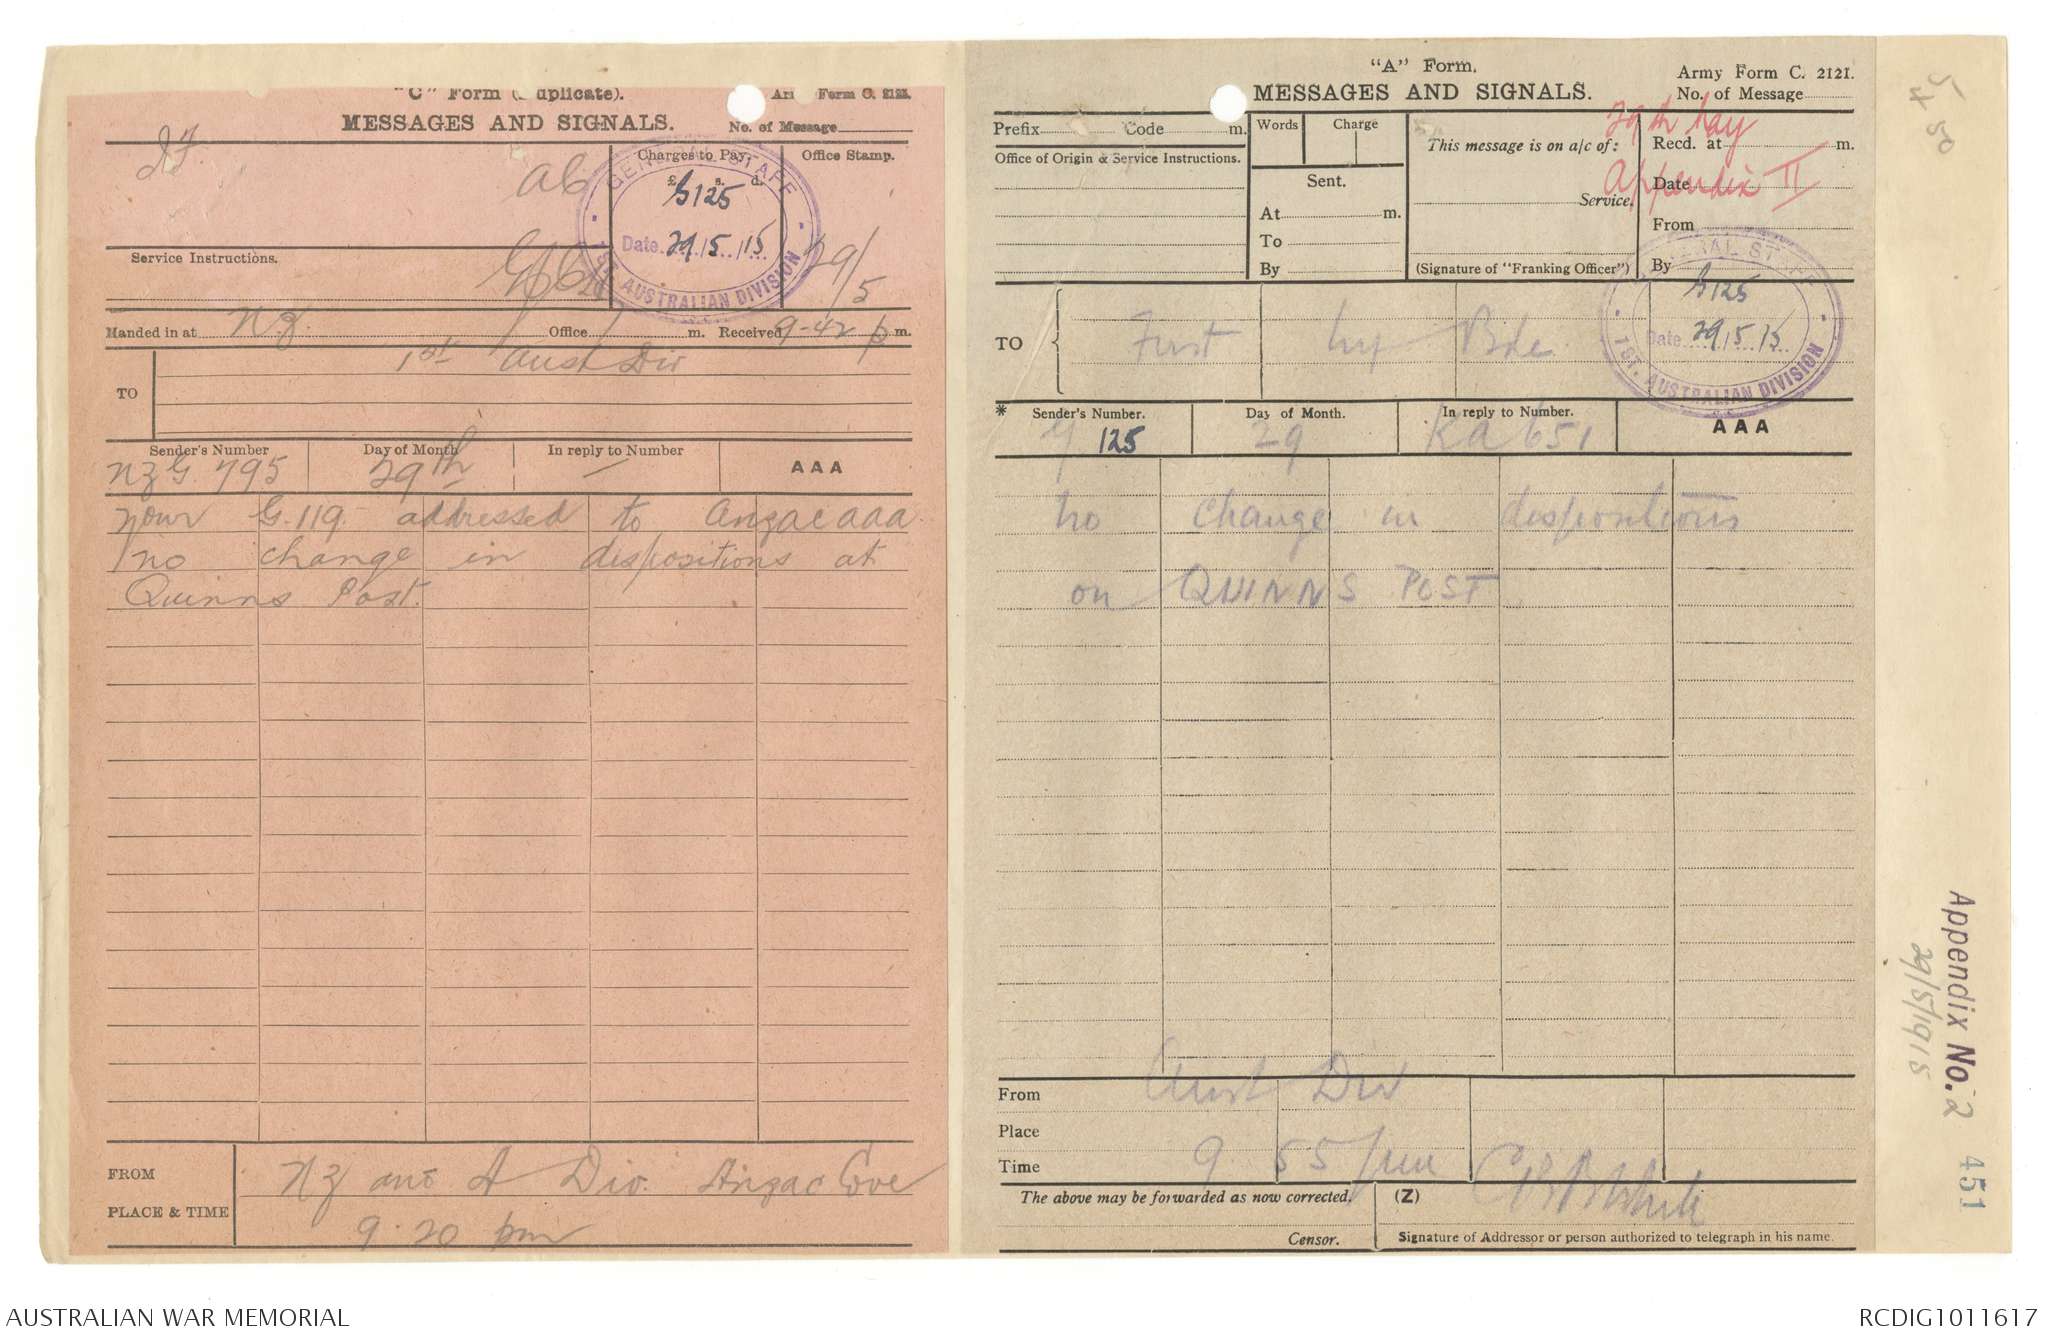 "C" Form (Duplicate).
Army Form C. 2123.
MESSAGES AND SIGNALS.
No. of Message
Charges to Pay.
£ s. d.
Office Stamp.
GENERAL STAFF
G125
Date 29/5/15
1ST. AUSTRALIAN DIVISION
29/5
Service Instructions.
Handed in at NZ Office m. Received 9-42 p m.
TO
1st Aust Div
Sender's Number
Day of Month
In reply to Number
AAA
NZG. 795
29th
—
Your G.119 addressed to Anzac aaa
no change in dispositions at
Quinns Post.
FROM
PLACE & TIME
NZ and A Div. Anzac Cove
9.20 pm
"A" Form.
Army Form C. 2121.
MESSAGES AND SIGNALS.
No. of Message
29th May
Appendix II
Prefix Code m.
Office of Origin & Service Instructions.
Words
Charge
Sent.
At m.
To
By
This message is on a/c of:
Service.
(Signature of "Franking Officer")
Recd. at m.
Date
From
By
GENERAL STAFF
G125
Date 29/5/15
1ST. AUSTRALIAN DIVISION
TO
First Bde
* Sender's Number.
Day of Month.
In reply to Number.
AAA
G 125
29
Ka 651
No change in dispositions
on QUINNS POST
From
Aust Div
Place
Time
9 55 pm
The above may be forwarded as now corrected.
(Z)
CBB White
Censor.
Signature of Addressor or person authorized to telegraph in his name.
Appendix No. 2
29/5/1915
451
AUSTRALIAN WAR MEMORIAL
RCDIG1011617